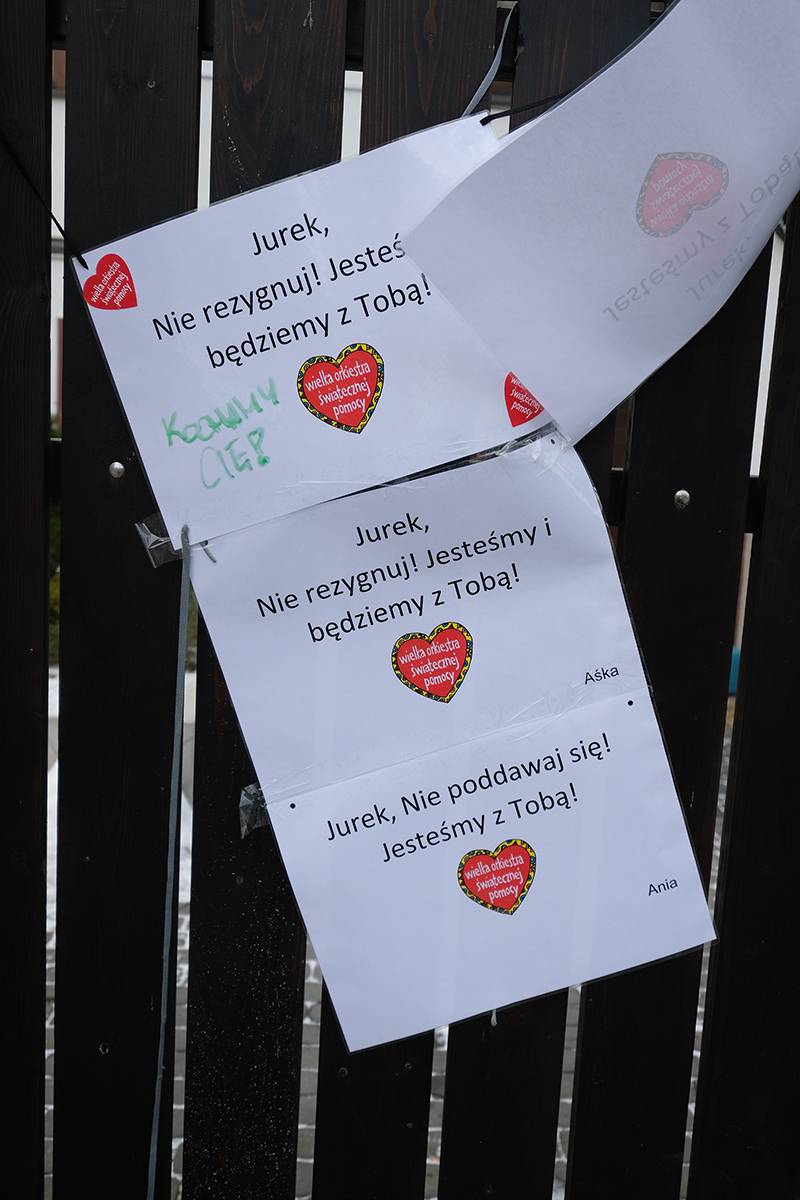 Jurek,
Nie rezygnuj! Jesteś
będziemy z Tobą!
wielka orkiestra
świątecznej
pomocy
wielka orkiestra
świątecznej
pomocy
KOCHAMY
CIĘ!
wielka
świątecznej
pomocy
Jurek,
Nie rezygnuj! Jesteśmy i
będziemy z Tobą!
wielka orkiestra
świątecznej
pomocy
Aśka
Jurek, Nie poddawaj się!
Jesteśmy z Tobą!
wielka orkiestra
świątecznej
pomocy
Ania
Jurek,
Jesteśmy z Tobą!
wielka orkiestra
świątecznej
pomocy